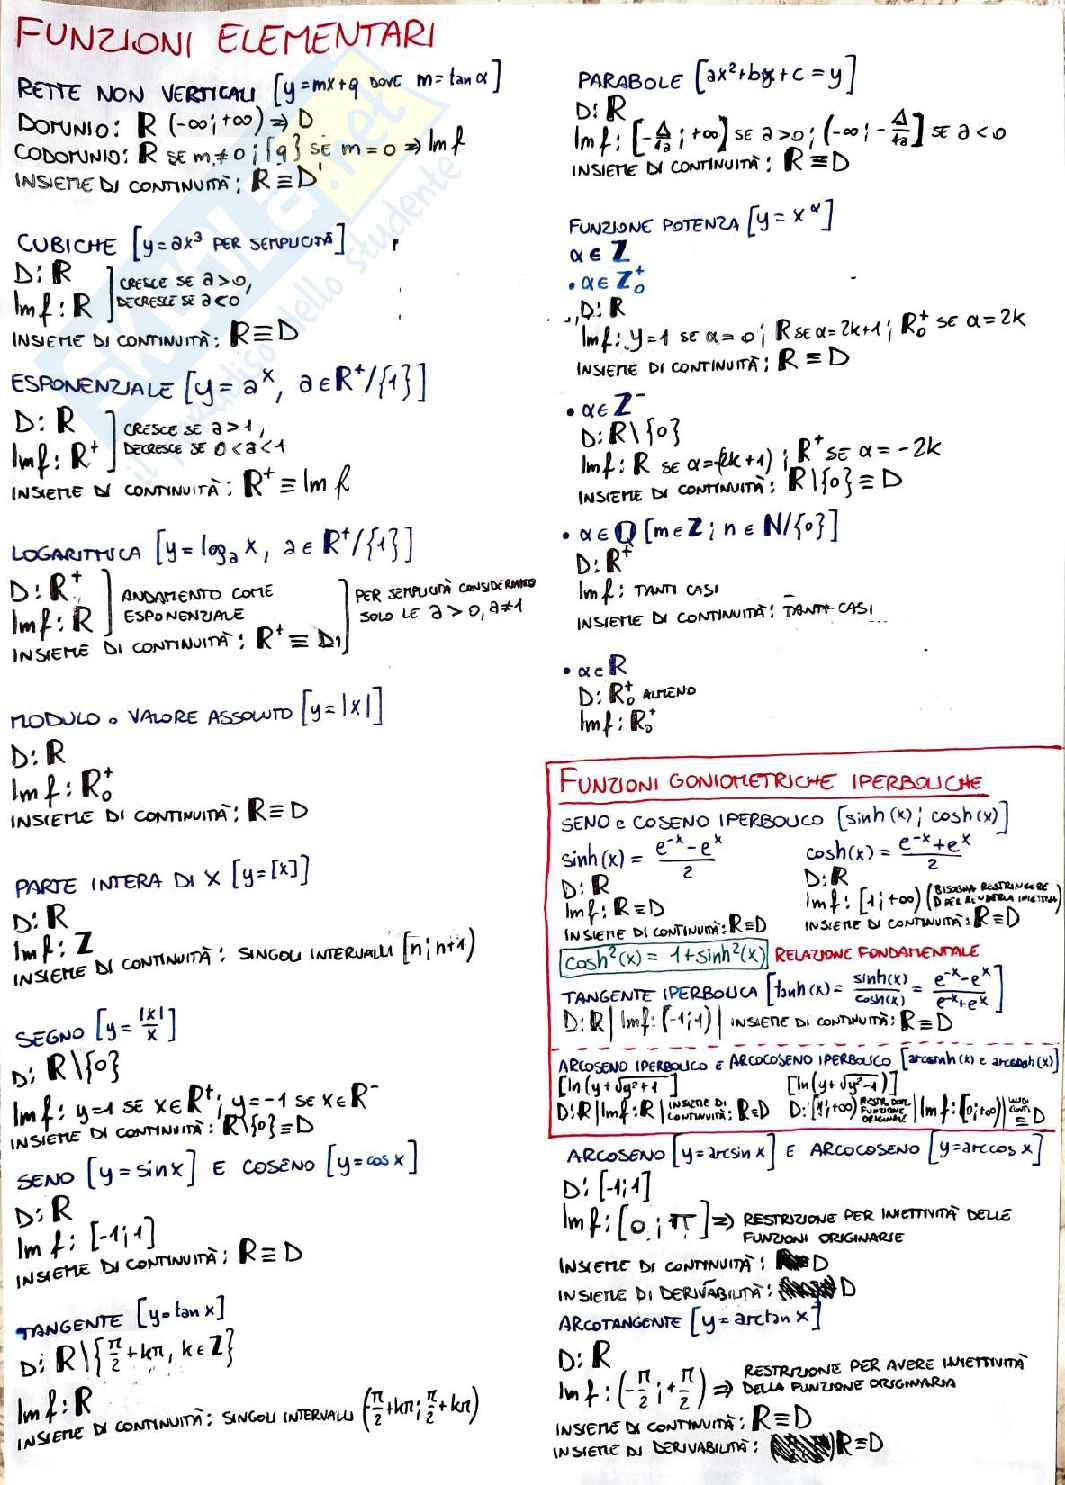 FUNZIONI ELEMENTARI
RETTE NON VERTICALI [y=mx+q DOVE m=tanα]
DOMINIO: R (-∞;+∞) ⇒ D
CODOMINIO: R SE m≠0; {q} SE m=0 ⇒ Im f
INSIEME DI CONTINUITÀ: R≡D
CUBICHE [y=ax³ PER SEMPLICITÀ]
D: R
CRESCE SE a>0,
Im f: R
DECRESCE SE a<0
INSIEME DI CONTINUITÀ: R≡D
ESPONENZIALE [y=aˣ, a∈R⁺/{1}]
D: R
CRESCE SE a>1,
Im f: R⁺
DECRESCE SE 0<a<1
INSIEME DI CONTINUITÀ: R⁺≡Im f
LOGARITMICA [y=logₐx, a∈R⁺/{1}]
D: R⁺
ANDAMENTO COME
Im f: R
ESPONENZIALE
INSIEME DI CONTINUITÀ: R⁺≡D
PER SEMPLICITÀ CONSIDERIAMO
SOLO LE a>0, a≠1
MODULO o VALORE ASSOLUTO [y=|x|]
D: R
Im f: R₀⁺
INSIEME DI CONTINUITÀ: R≡D
PARTE INTERA DI X [y=[x]]
D: R
Im f: Z
INSIEME DI CONTINUITÀ: SINGOLI INTERVALLI [n;n+1)
SEGNO [y=|x|/x]
D: R\{0}
Im f: y=1 SE x∈R⁺; y=-1 SE x∈R⁻
INSIEME DI CONTINUITÀ: R\{0}≡D
SENO [y=sinx] E COSENO [y=cosx]
D: R
Im f: [-1;1]
INSIEME DI CONTINUITÀ: R≡D
TANGENTE [y=tanx]
D: R\{π/2+kπ, k∈Z}
Im f: R
INSIEME DI CONTINUITÀ: SINGOLI INTERVALLI (-π/2+kπ; π/2+kπ)
PARABOLE [ax²+bx+c=y]
D: R
Im f: [-Δ/4a;+∞] SE a>0; (-∞;-Δ/4a] SE a<0
INSIEME DI CONTINUITÀ: R≡D
FUNZIONE POTENZA [y=x^α]
α∈Z
• α∈Z₀⁺
D: R
Im f: y=1 SE α=0; R SE α=2k+1; R₀⁺ SE α=2k
INSIEME DI CONTINUITÀ: R≡D
• α∈Z⁻
D: R\{0}
Im f: R SE α=-(2k+1); R⁺ SE α=-2k
INSIEME DI CONTINUITÀ: R\{0}≡D
• α∈Q [m∈Z; n∈N/{0}]
D: R⁺
Im f: TANTI CASI
INSIEME DI CONTINUITÀ: TANTI CASI
• α∈R
D: R₀⁺ ALMENO
Im f: R₀⁺
FUNZIONI GONIOMETRICHE IPERBOLICHE
SENO e COSENO IPERBOLICO [sinh(x); cosh(x)]
sinh(x)=(e⁻ˣ-eˣ)/2
D: R
Im f: R≡D
INSIEME DI CONTINUITÀ: R≡D
cosh(x)=(e⁻ˣ+eˣ)/2
D: R
Im f: [1;+∞) (BISOGNA RESTRINGERE
D PER RENDERLA INIETTIVA)
INSIEME DI CONTINUITÀ: R≡D
cosh²(x)=1+sinh²(x) RELAZIONE FONDAMENTALE
TANGENTE IPERBOLICA [tanh(x)=sinh(x)/cosh(x)=(e⁻ˣ-eˣ)/(e⁻ˣ+eˣ)]
D: R | Im f: (-1;1) | INSIEME DI CONTINUITÀ: R≡D
ARCOSENO IPERBOLICO E ARCOCOSENO IPERBOLICO [arcosinh(x) e arccosh(x)]
[ln(y+√y²+1]
D: R | Im f: R | INSIEME DI CONTINUITÀ: R≡D
[ln(y+√y²-1)]
D: [1;+∞) FUNZIONE ORIGINALE | Im f: [0;+∞) | ≡D
ARCOSENO [y=arcsinx] E ARCOCOSENO [y=arccosx]
D: [-1;1]
Im f: [0;π] ⇒ RESTRIZIONE PER INIETTIVITÀ DELLE
FUNZIONI ORIGINARIE
INSIEME DI CONTINUITÀ: D
INSIEME DI DERIVABILITÀ: D
ARCOTANGENTE [y=arctanx]
D: R
Im f: (-π/2;+π/2) ⇒ RESTRIZIONE PER AVERE INIETTIVITÀ
DELLA FUNZIONE ORIGINARIA
INSIEME DI CONTINUITÀ: R≡D
INSIEME DI DERIVABILITÀ: R≡D
skuola.net
il paradiso dello studente